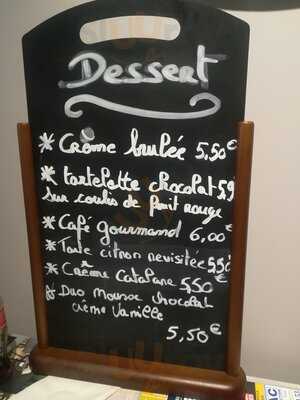 Dessert
* Crème brulée 5,50€
* tartelette chocolat 5,5
sur coulis de fruit rouge
* Café gourmand 6,00€
* Tarte citron revisitée 5,50
* Crème Catalane 5,50€
* Duo Mousse chocolat
crème Vanille
5,50€